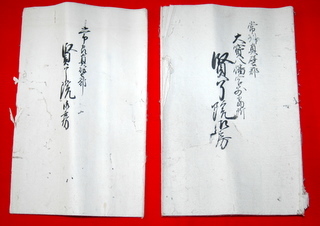 常州真壁郡
大寶八幡宮別當所
賢了院御房
常州真壁郡
賢了院御房